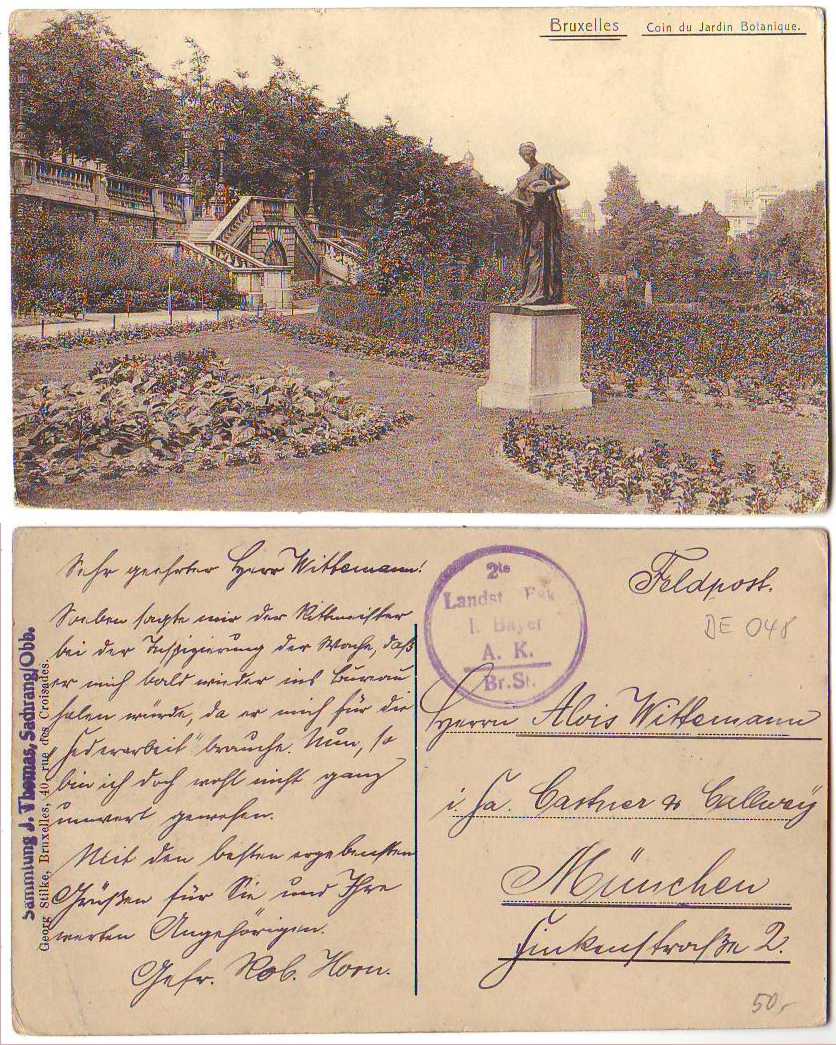 Bruxelles Coin du Jardin Botanique.
Sehr geehrter Herr Wittemann!
Soeben sagte mir der Rittmeister
bei der Inspizierung der Wache, daß
er mich bald wieder ins Bureau
holen würde, da er mich für die
„Federarbeit" brauche. Nun, so
bin ich doch wohl nicht ganz
unwert gewesen.
Mit den besten ergebensten
Grüßen für Sie und Ihre
werten Angehörigen.
Gefr. Rob. Horn.
Sammlung J. Thomas, Sachrang/Obb.
Georg Stilke, Bruxelles, 40, rue des Croisades.
2te
Landst. Esk.
I. Bayer
A. K.
Br.St.
Feldpost.
DE 048
Herrn Alois Wittemann
i. Fa. Castner & Callwey
München
Finkenstraße 2.
50,-